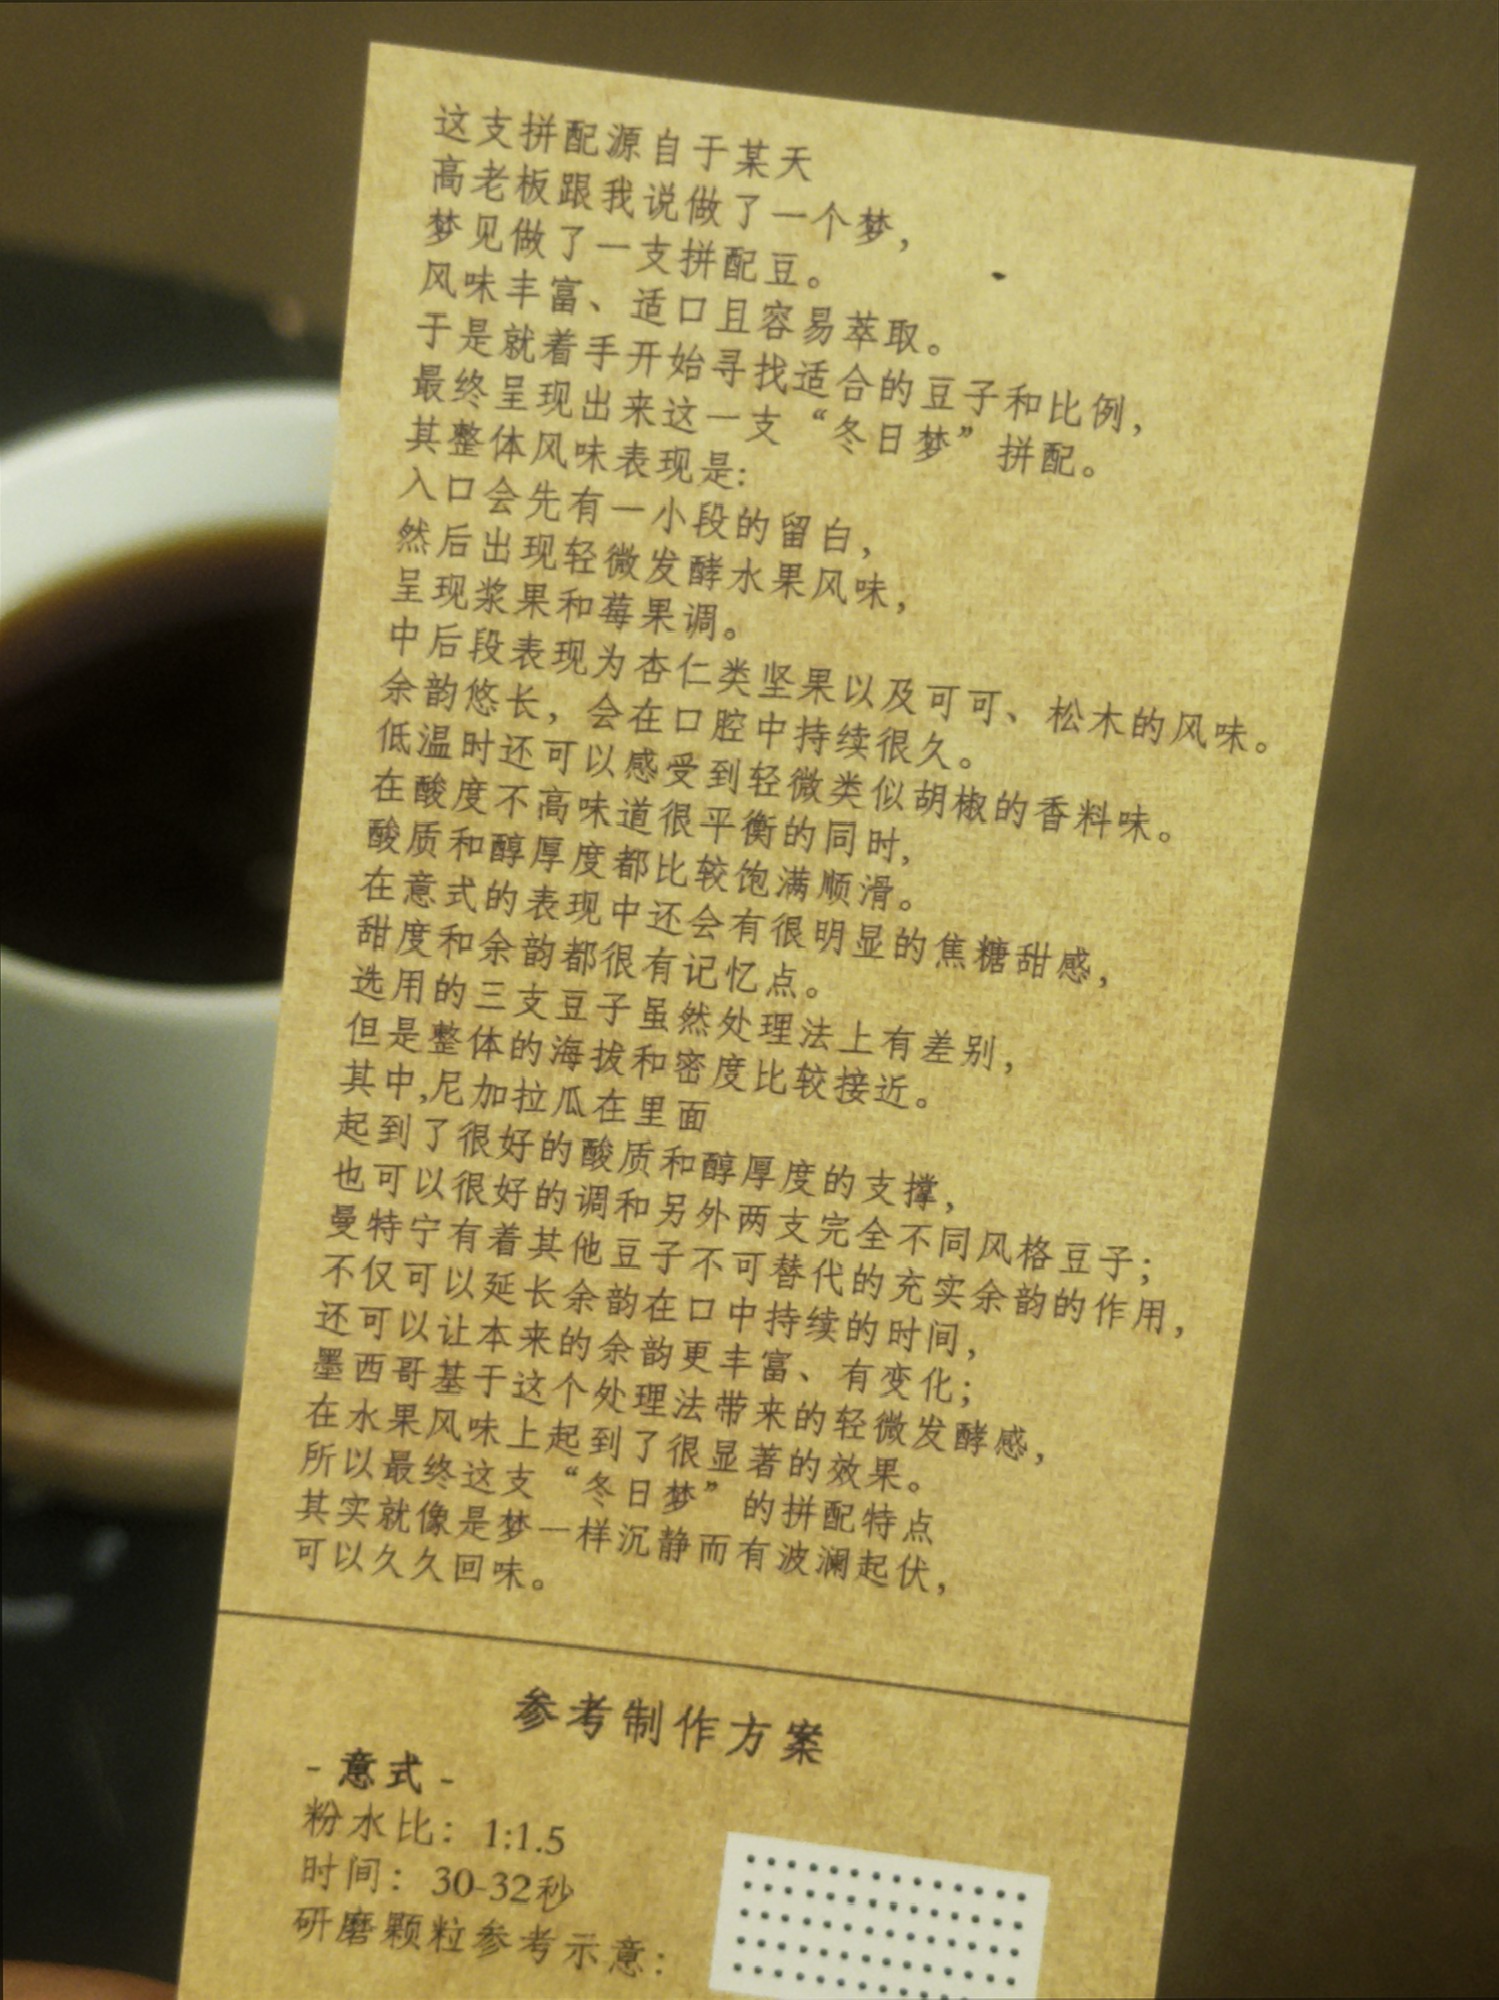 这支拼配源自于某天
高老板跟我说做了一个梦，
梦见做了一支拼配豆。
风味丰富、适口且容易萃取。
于是就着手开始寻找适合的豆子和比例，
最终呈现出来这一支“冬日梦”拼配。
其整体风味表现是：
入口会先有一小段的留白，
然后出现轻微发酵水果风味，
呈现浆果和莓果调。
中后段表现为杏仁类坚果以及可可、松木的风味。
余韵悠长，会在口腔中持续很久。
低温时还可以感受到轻微类似胡椒的香料味。
在酸度不高味道很平衡的同时，
酸质和醇厚度都比较饱满顺滑。
在意式的表现中还会有很明显的焦糖甜感，
甜度和余韵都很有记忆点。
选用的三支豆子虽然处理法上有差别，
但是整体的海拔和密度比较接近。
其中,尼加拉瓜在里面
起到了很好的酸质和醇厚度的支撑，
也可以很好的调和另外两支完全不同风格豆子；
曼特宁有着其他豆子不可替代的充实余韵的作用，
不仅可以延长余韵在口中持续的时间，
还可以让本来的余韵更丰富、有变化；
墨西哥基于这个处理法带来的轻微发酵感，
在水果风味上起到了很显著的效果。
所以最终这支“冬日梦”的拼配特点
其实就像是梦一样沉静而有波澜起伏，
可以久久回味。
参考制作方案
- 意式 -
粉水比：1:1.5
时间：30-32秒
研磨颗粒参考示意：